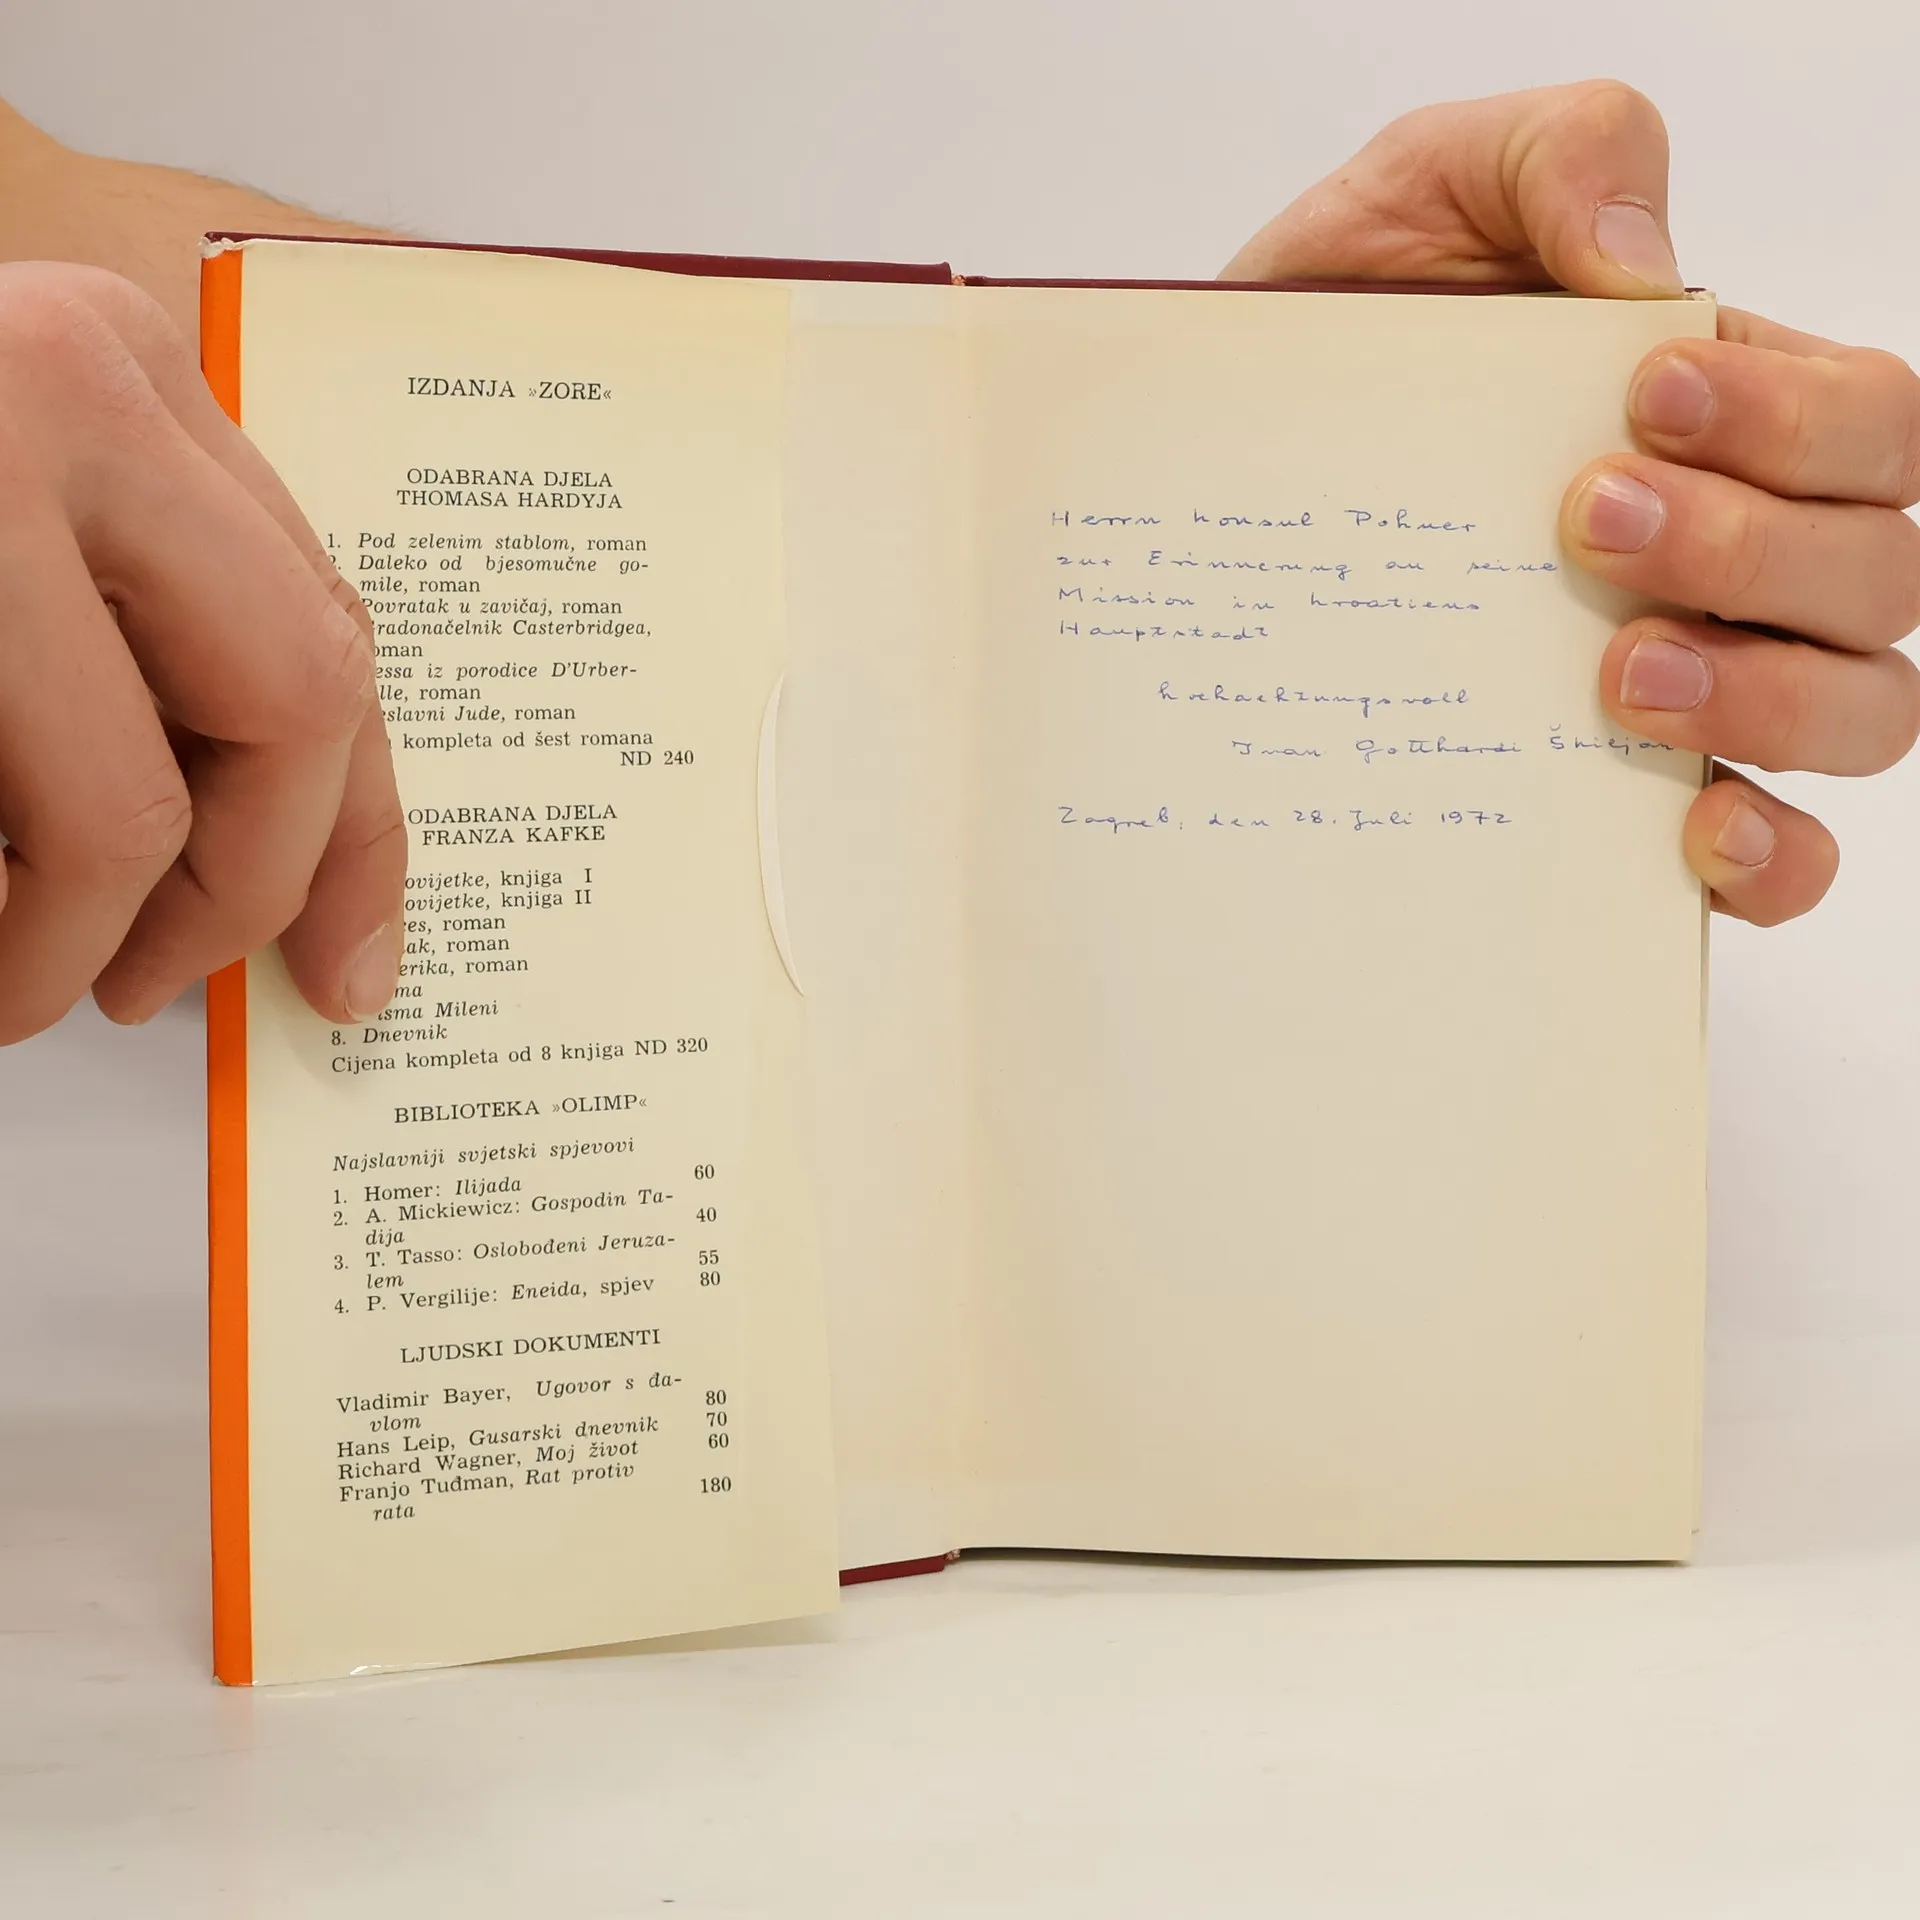 IZDANJA »ZORE«
ODABRANA DJELA
THOMASA HARDYJA
1. Pod zelenim stablom, roman
2. Daleko od bjesomučne go-
mile, roman
Povratak u zavičaj, roman
Gradonačelnik Casterbridgea,
roman
essa iz porodice D'Urber-
lle, roman
eslavni Jude, roman
kompleta od šest romana
ND 240
ODABRANA DJELA
FRANZA KAFKE
ovijetke, knjiga I
ovijetke, knjiga II
ces, roman
ak, roman
erika, roman
ma
isma Mileni
8. Dnevnik
Cijena kompleta od 8 knjiga ND 320
BIBLIOTEKA »OLIMP«
Najslavniji svjetski spjevovi
1. Homer: Ilijada 60
2. A. Mickiewicz: Gospodin Ta-
dija 40
3. T. Tasso: Oslobođeni Jeruza-
lem 55
4. P. Vergilije: Eneida, spjev 80
LJUDSKI DOKUMENTI
Vladimir Bayer, Ugovor s đa-
vlom 80
Hans Leip, Gusarski dnevnik 70
Richard Wagner, Moj život 60
Franjo Tuđman, Rat protiv
rata 180
Herrn Konsul Pohner
zur Erinnerung an seine
Mission in Kroatiens
Hauptstadt
hochachtungsvoll
Ivan Gotthardi Škiljan
Zagreb, den 28. Juli 1972